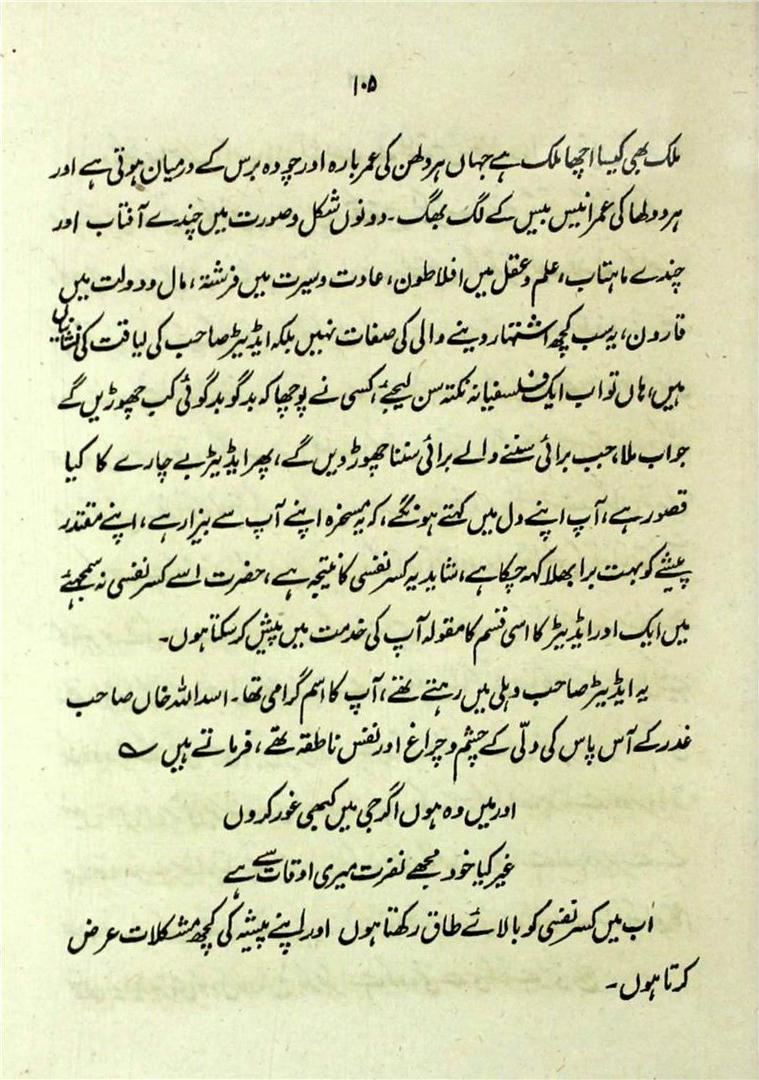 ۱۰۵
ملک بھی کیسا اچھا ملک ہے جہاں ہر دلھن کی عمر بارہ اور چودہ برس کے درمیان ہوتی ہے اور
ہر دولھا کی عمر انیس بیس کے لگ بھگ۔ دونوں شکل و صورت میں چندے آفتاب اور
چندے ماہتاب، علم و عقل میں افلاطون، عادت و سیرت میں فرشتہ، مال و دولت میں
قارون، یہ سب کچھ اشتہار دینے والی کی صفات نہیں بلکہ ایڈیٹر صاحب کی لیاقت کی نشانیاں
ہیں، ہاں تو اب ایک فلسفیانہ نکتہ سن لیجئے، کسی نے پوچھا کہ بدگو بدگوئی کب چھوڑیں گے
جواب ملا، جب برائی سننے والے برائی سننا چھوڑ دیں گے، پھر ایڈیٹر بے چارے کا کیا
قصور ہے، آپ اپنے دل میں کہتے ہونگے، کہ یہ مسخرہ اپنے آپ سے بیزار ہے، اپنے مقتدر
پیشے کو بہت برا بھلا کہہ چکا ہے، شاید یہ کسر نفسی کا نتیجہ ہے، حضرت اسے کسر نفسی نہ سمجھئے
میں ایک اور ایڈیٹر کا اسی قسم کا مقولہ آپ کی خدمت میں پیش کر سکتا ہوں۔
یہ ایڈیٹر صاحب دہلی میں رہتے تھے، آپ کا اسم گرامی تھا۔ اسد اللہ خاں صاحب
غدر کے آس پاس کی دلّی کے چشم و چراغ اور نفس ناطقہ تھے، فرماتے ہیں ؎
اور میں وہ ہوں اگر جی میں کبھی غور کروں
غیر کیا خود مجھے نفرت میری اوقات سے ہے
اب میں کسر نفسی کو بالائے طاق رکھتا ہوں اور اپنے پیشہ کی کچھ مشکلات عرض
کرتا ہوں۔